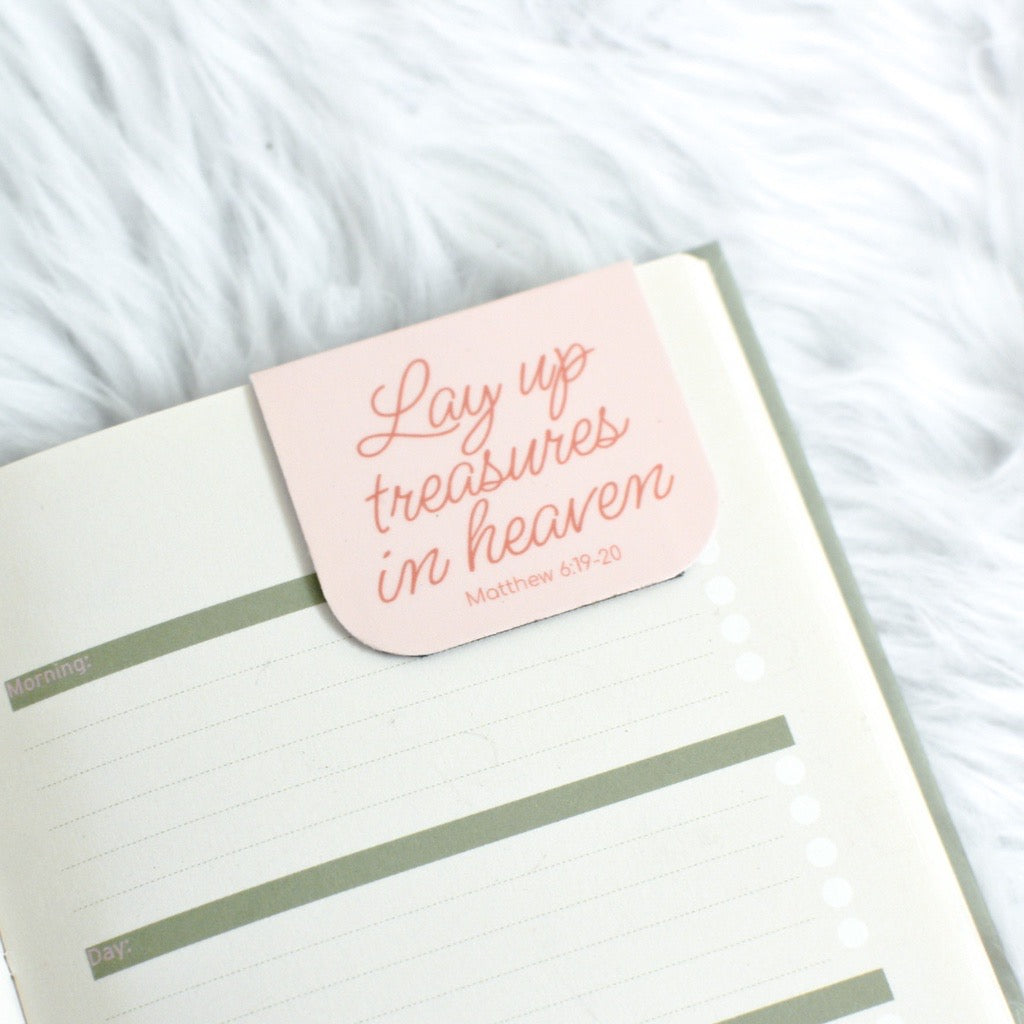 Lay up
treasures
in heaven
Matthew 6:19-20
Morning:
Day: